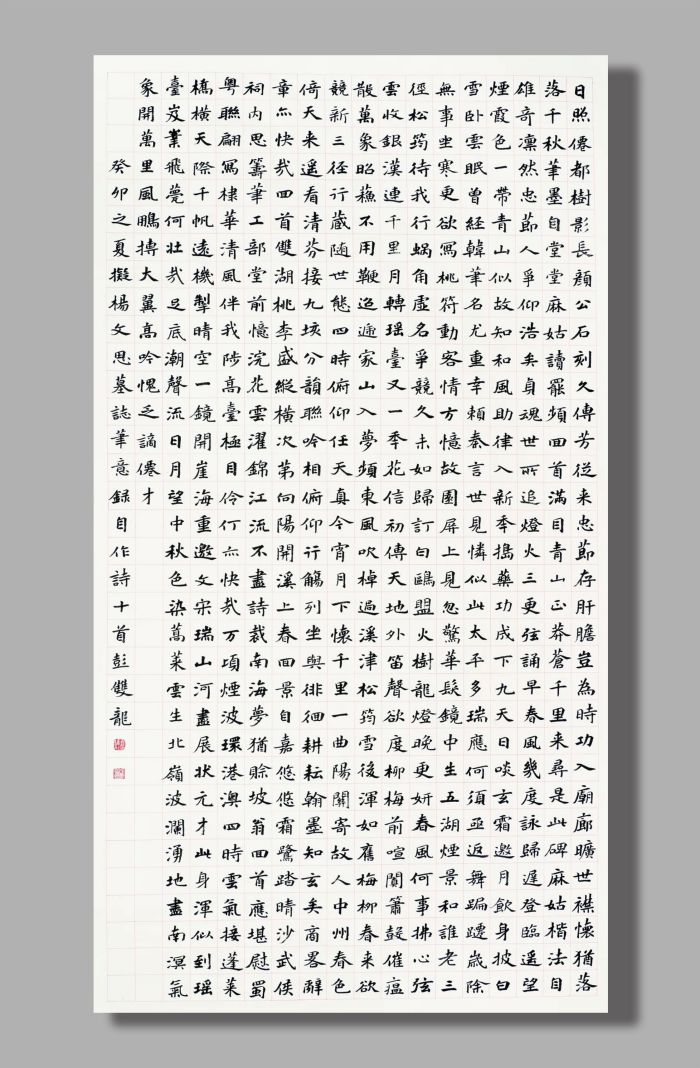 日照僊都樹影長顏公石刻久傳芳從来忠節存肝膽豈為時功入廟廊曠世襟懷猶落
落千秋筆墨自堂堂麻姑讀罷頻回首滿目青山正莽蒼千里来尋是此碑麻姑楷法目
雄奇凛然忠節人爭仰浩矣貞魂世所追燈火三更弦誦早春風幾度詠歸遲登臨遥望
煙霞色一帶青山似故知和風助律入新季搗藥功成下九天日啖玄霜邀月飲身披白
雪卧雲眠曾經韓筆名尤重幸頼秦言世見憐似此太平多瑞應何須亟返舞蹁躚歳除
無事坐寒更欲寫桃符動客情方憶故園屏上見忽驚華髮鏡中生五湖煙景和誰老三
徑松筠待我行蝸角虛名爭競久未如歸訂白鷗盟火樹龍燈晚更妍春風何事拂心弦
雲收銀漢連千里月轉瑶臺又一季花信初傳天地外笛聲欲度柳梅前喧闐簫鼓催瘟
散萬象昭蘓不用鞭迢遞家山入夢頻東風吹棹過溪津松筠雪後渾如舊梅柳春来欲
競新三径行蔵隨世態四時俯仰任天真今宵月下懷千里一曲陽關寄故人中州春色
倚天来遥看清芬接九垓分韻聯吟相俯仰行觴列坐與徘徊耕耘翰墨知玄矣商畧辭
章亦快哉四首雙湖桃李盛縱橫次第向陽開溪上春回景自嘉悠悠霜鷺踏晴沙武侯
祠内思籌筆工部堂前憶浣花雲濯錦江流不盡詩裁南海夢猶賒坡翁回首應堪慰蜀
粤聯翩寫棣華清風伴我陟高臺極目伶仃亦快哉万頃煙波環港澳四時雲氣接蓬莱
橋横天際千帆遠機掣晴空一鏡開崖海重邀文宋瑞山河盡展状元才此身渾似到瑶
臺岌業飛甍何壮哉足底潮聲流日月望中秋色染蒿莱雲生北嶺波瀾湧地盡南溟氣
象開萬里風鵬搏大翼高吟愧乏謫僊才
癸卯之夏擬楊文思墓誌筆意錄自作詩十首彭雙龍